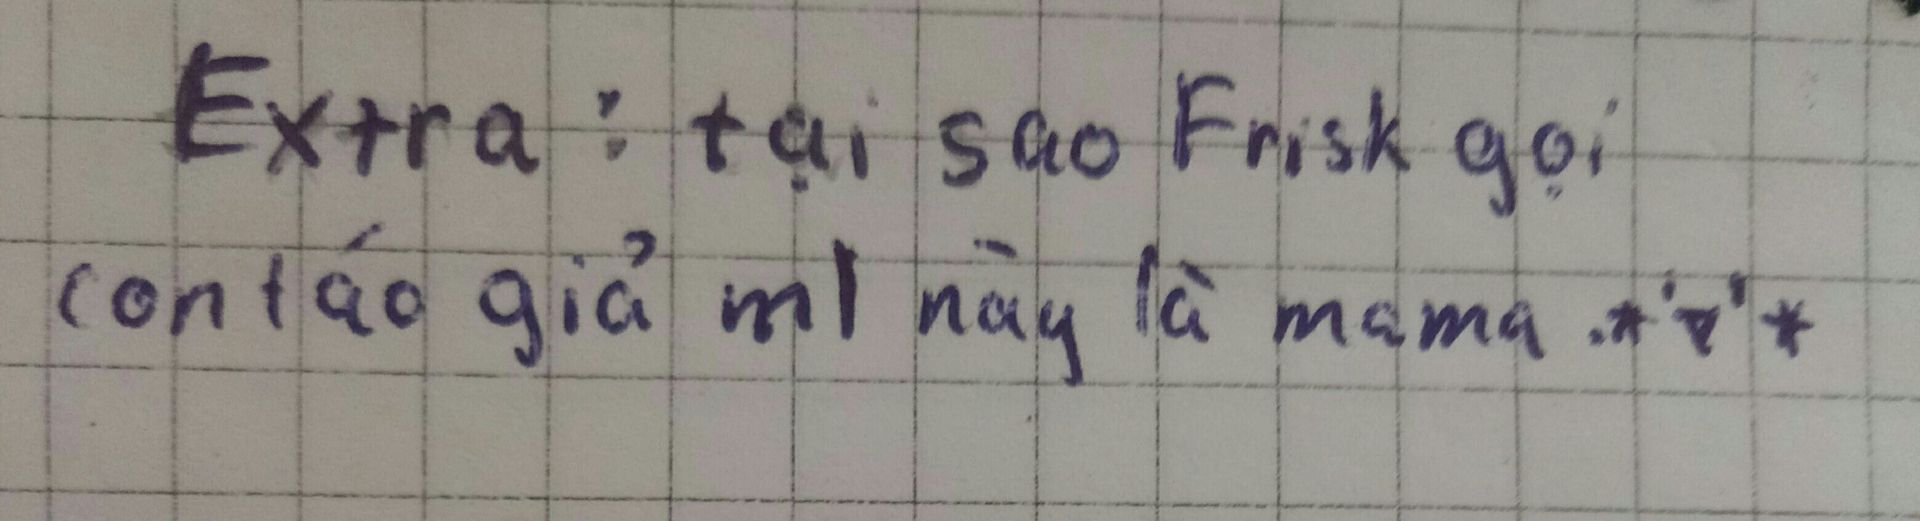 Extra : tại sao Frisk gọi
con táo giả ml này là mama .*'v'*